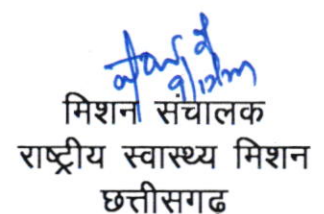 मिशन संचालक
राष्ट्रीय स्वास्थ्य मिशन
छत्तीसगढ